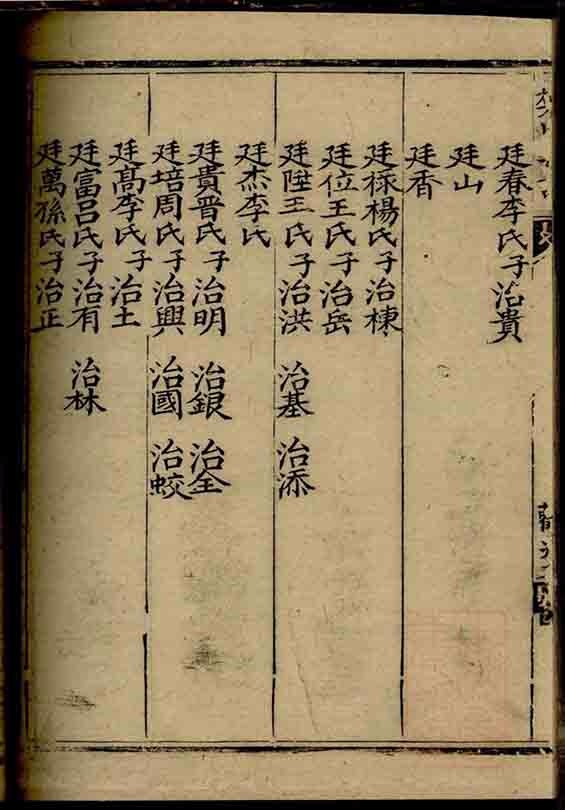 廷春李氏子治貴
廷山
廷香
廷祿楊氏子治棟
廷位王氏子治岳
廷陞王氏子治洪 治基 治添
廷杰李氏
廷貴晋氏子治明 治銀 治全
廷培周氏子治興 治國 治蛟
廷高李氏子治土
廷富呂氏子治有 治林
廷萬孫氏子治正